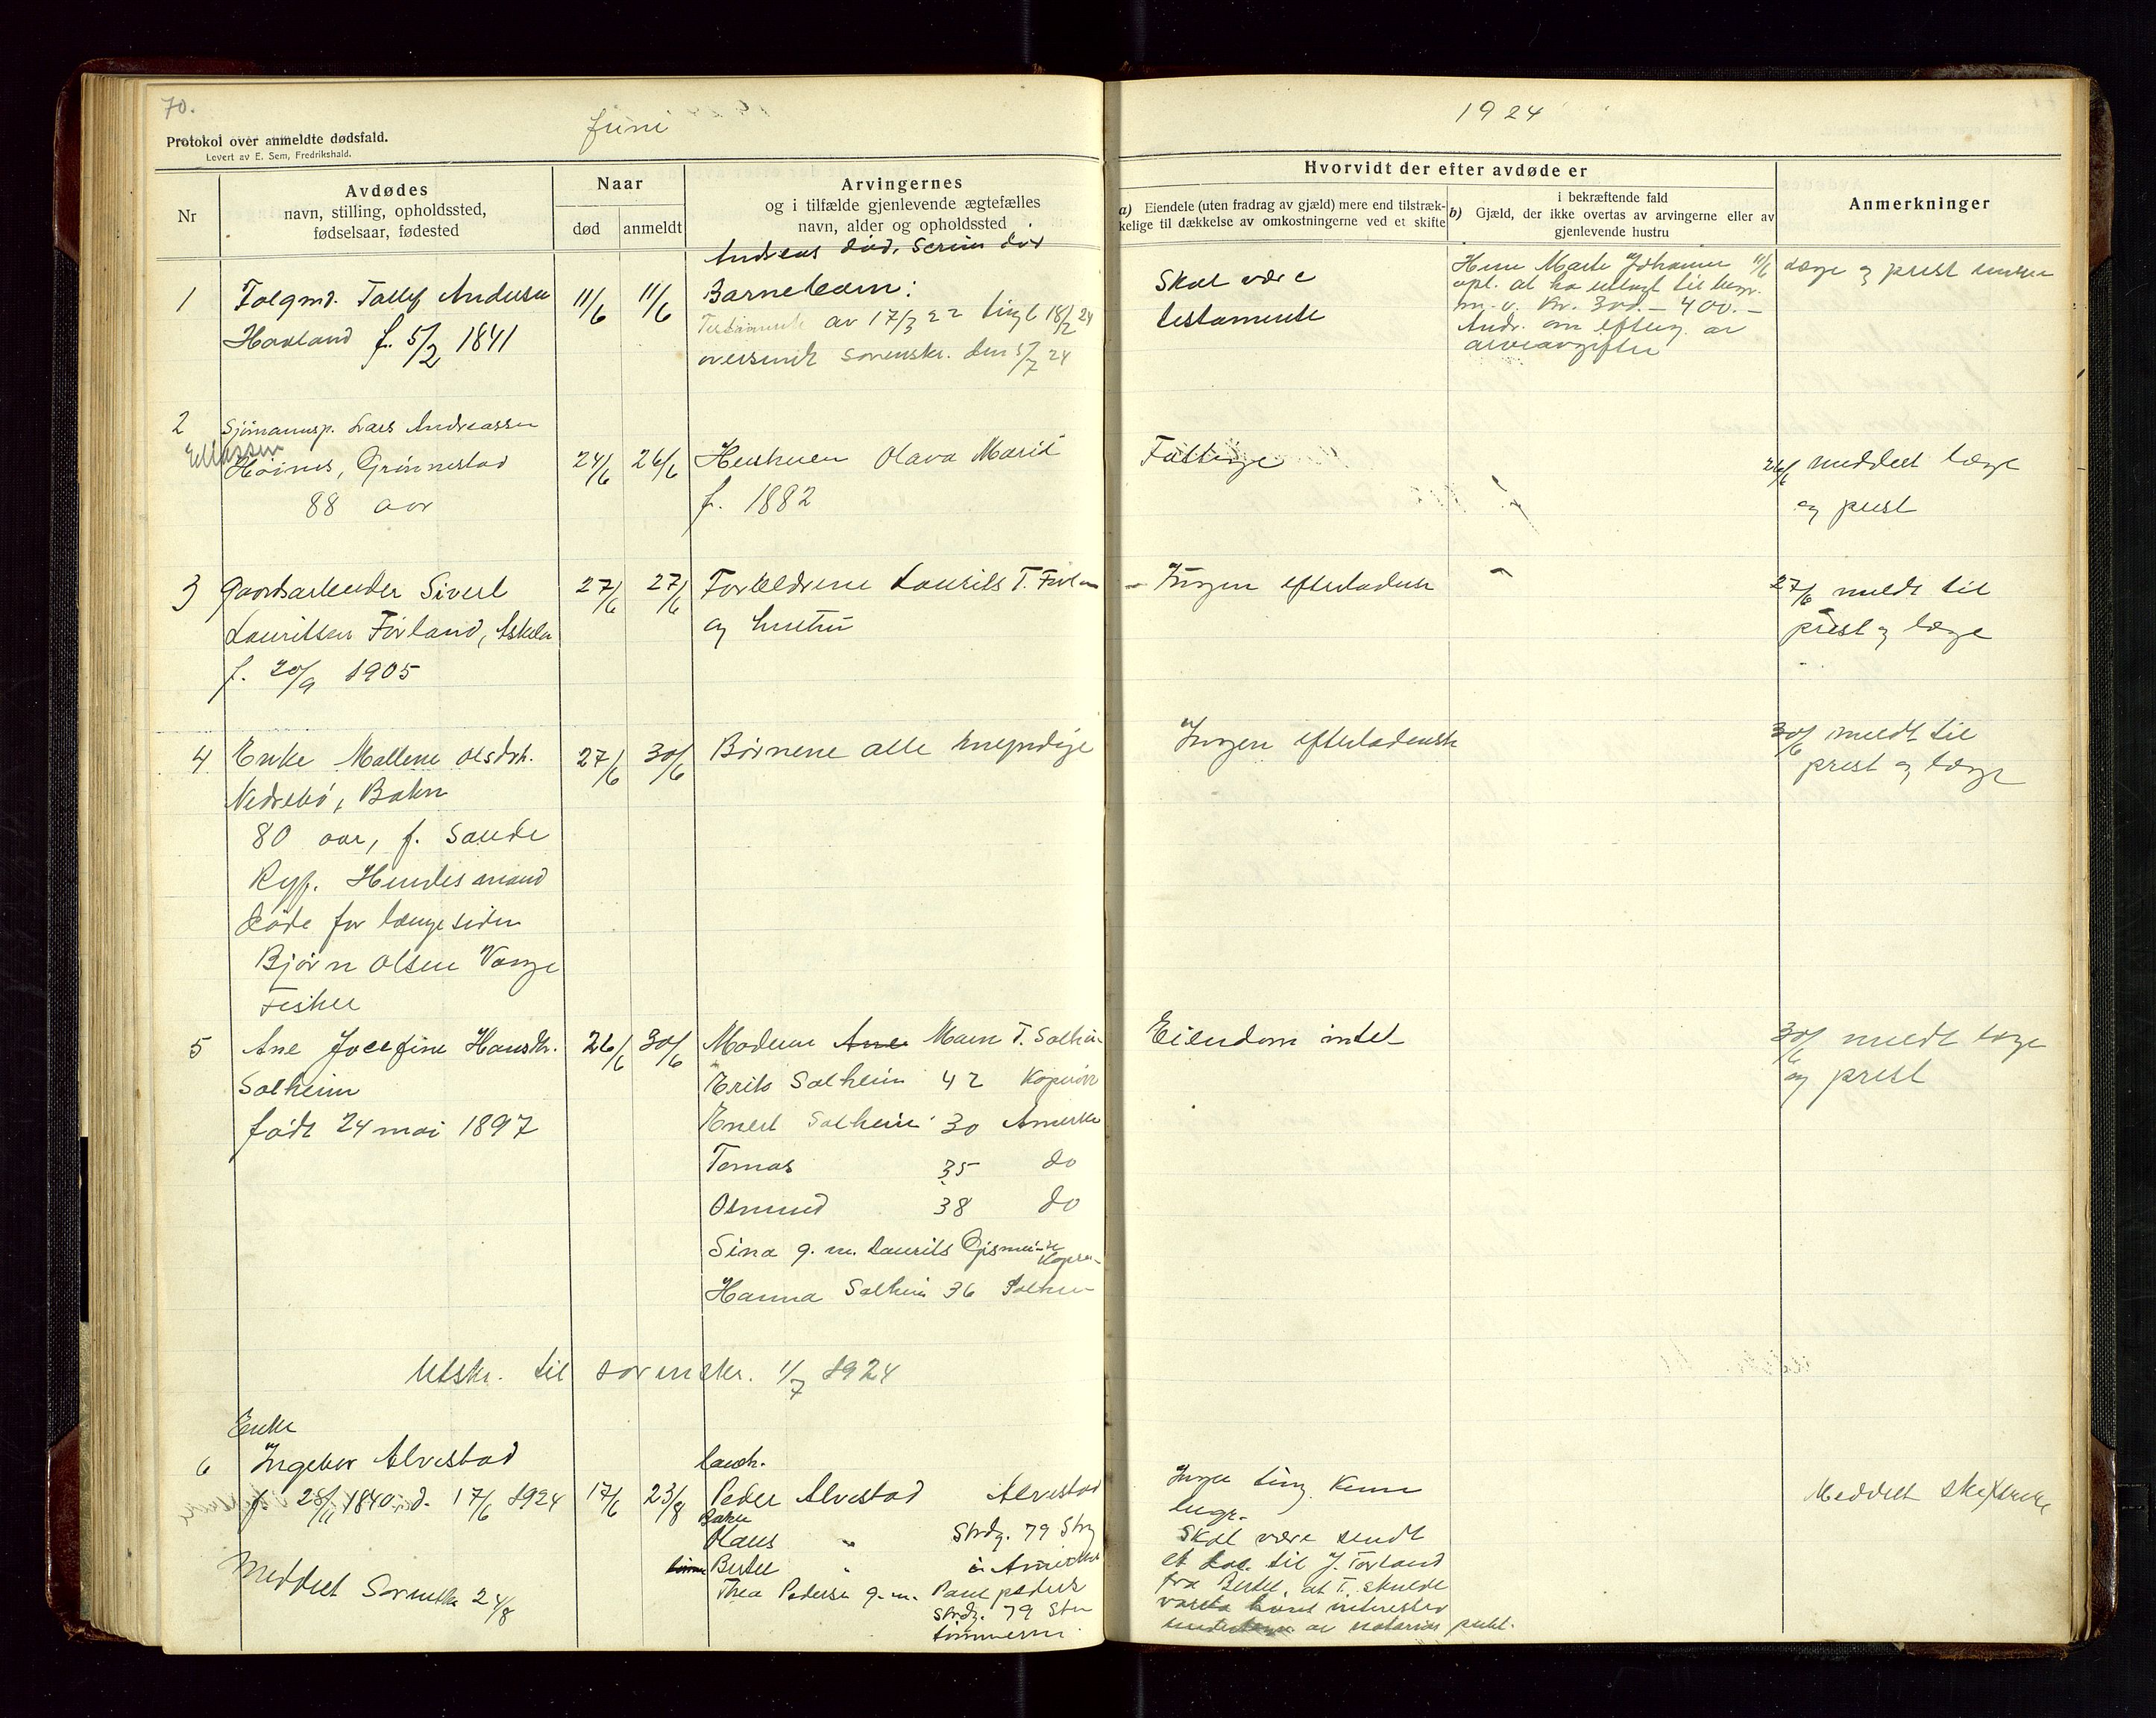 70.
Juni
1924
Protokol over anmeldte dødsfald.
Levert av E. Sem, Fredrikshald.
Nr
Avdødes
navn, stilling, opholdssted,
fødselsaar, fødested
Naar
død
anmeldt
Arvingernes
og i tilfælde gjenlevende ægtefælles
navn, alder og opholdssted
Hvorvidt der efter avdøde er
a) Eiendele (uten fradrag av gjæld) mere end tilstræk-
kelige til dækkelse av omkostningerne ved et skifte
i bekræftende fald
b) Gjæld, der ikke overtas av arvingerne eller av
gjenlevende hustru
Anmerkninger
Andreas død, Serine død
1 Folgmd. Tollef Andersen
Havland f. 5/2 1841
11/6 11/6
Barnebarn:
Testamente av 17/3 22 tingl 18/2 24
oversendt sorenskr. den 5/7 24
Skal være
testamente
Marte Johanne 11/6
opl. at ha utlagt til begr.
m. v. kr. 300.- 400.-
Andr. om efterg. av
arveavgiften
læge og prest
2 Sjömannsp. Lars Andreassen
Eliassen
Höines, Grinnestad
88 aar
24/6 26/6
Hustruen Olava Marie
f. 1882
Fattige
26/6 meddelt læge
og prest
3 Gaardsarbeider Sivert
Lauritsen Förland,
f. 20/9 1905
27/6 27/6
Forældrene Laurits T.
og hustru
Ingen efterladensk
27/6 meldt til
prest og læge
4 Enke Mallene Olsdtr.
Nedrebö, Bokn
80 aar, f. Saude
Ryf. Hendes mand
döde for længe siden
Björn Olsen Vange
Fisker
27/6 30/6
Börnene alle myndige
Ingen efterladensk
30/6 meldt til
prest og læge
5 Ane Josefine Hansdtr.
Solheim
födt 24 mai 1897
26/6 30/6
Moderen Ane Maren T. Solheim
Erik Solheim 42 Kopervik
Enert Solheim 30 Amerika
Tomas 35 do
Osmund 38 do
Sina g. m. Laurits
Hanna Solheim 36 Solheim
Eiendom intet
30/6 meldt læge
og prest
Utskr. til sorenskr. 1/7 1924
Enke
6 Ingebor Alvestad
1840 d. 17/6 1924
17/6 23/8
Meddelt Sorenskr 24/8
Peder Alvestad Alvestad
Olaus " Strdg. 79 Stvg
Bertel " i Amerika
Thea Pedersen g. m. Paul Pedersen
Strdg. 79 Stv
tömmerm.
Ingen ting. Kun
begr.
Skal være sendt
et til J. Torland
fra Bertel, at T. skulde
vareta hans interesser
av notarius publ.
Meddelt